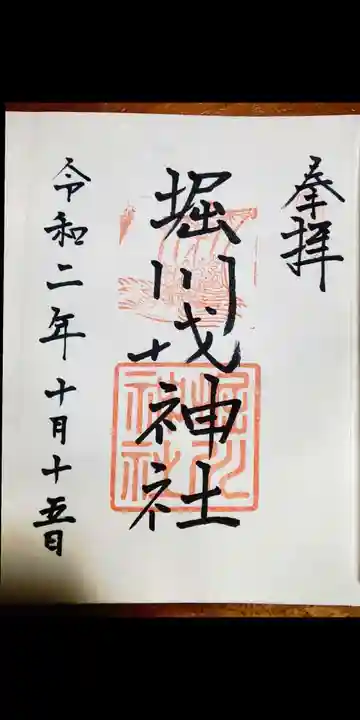 奉拝
堀川戎神社
令和二年十月十五日
堀川
神社